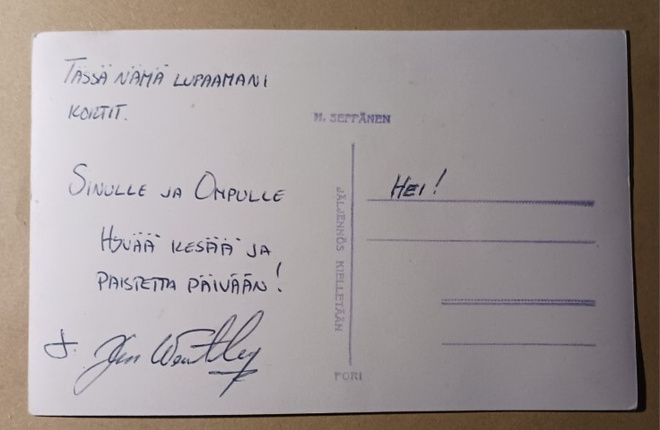 TÄSSÄ NÄMÄ LUPAAMANI
KORTIT.
SINULLE JA OMPULLE
HYVÄÄ KESÄÄ JA
PAISTETTA PÄIVÄÄN!
M. SEPPÄNEN
JÄLJENNÖS KIELLETÄÄN
PORI
HEI!